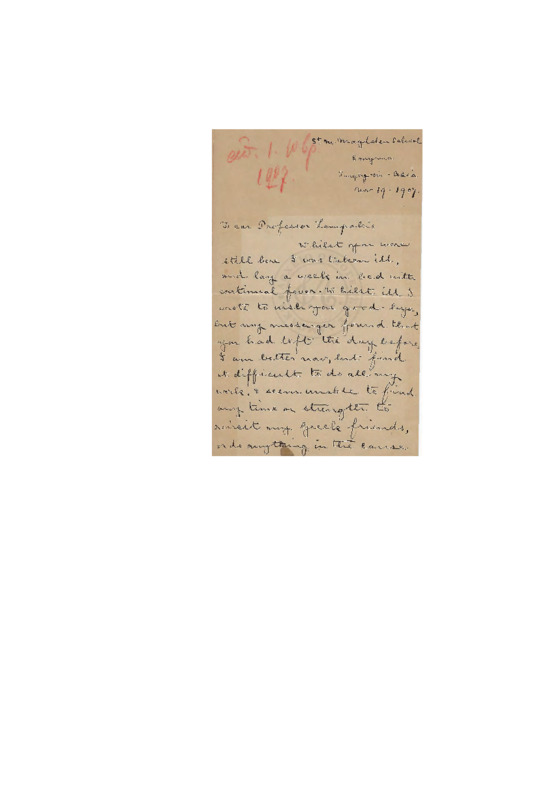 St M. Magdalen School
Smyrna
Asia
Nov 19 - 1907.
1907.
Dear Professor Lampakis
Whilst you were
still here I was taken ill,
and lay a week in bed with
continual fever. Whilst ill I
wrote to wish you good-bye,
but my messenger found that
you had left the day before
I am better now, but find
it difficult to do all my
work, & seem unable to find
any time or strength to
visit my Greek friends,
or do anything in the cause